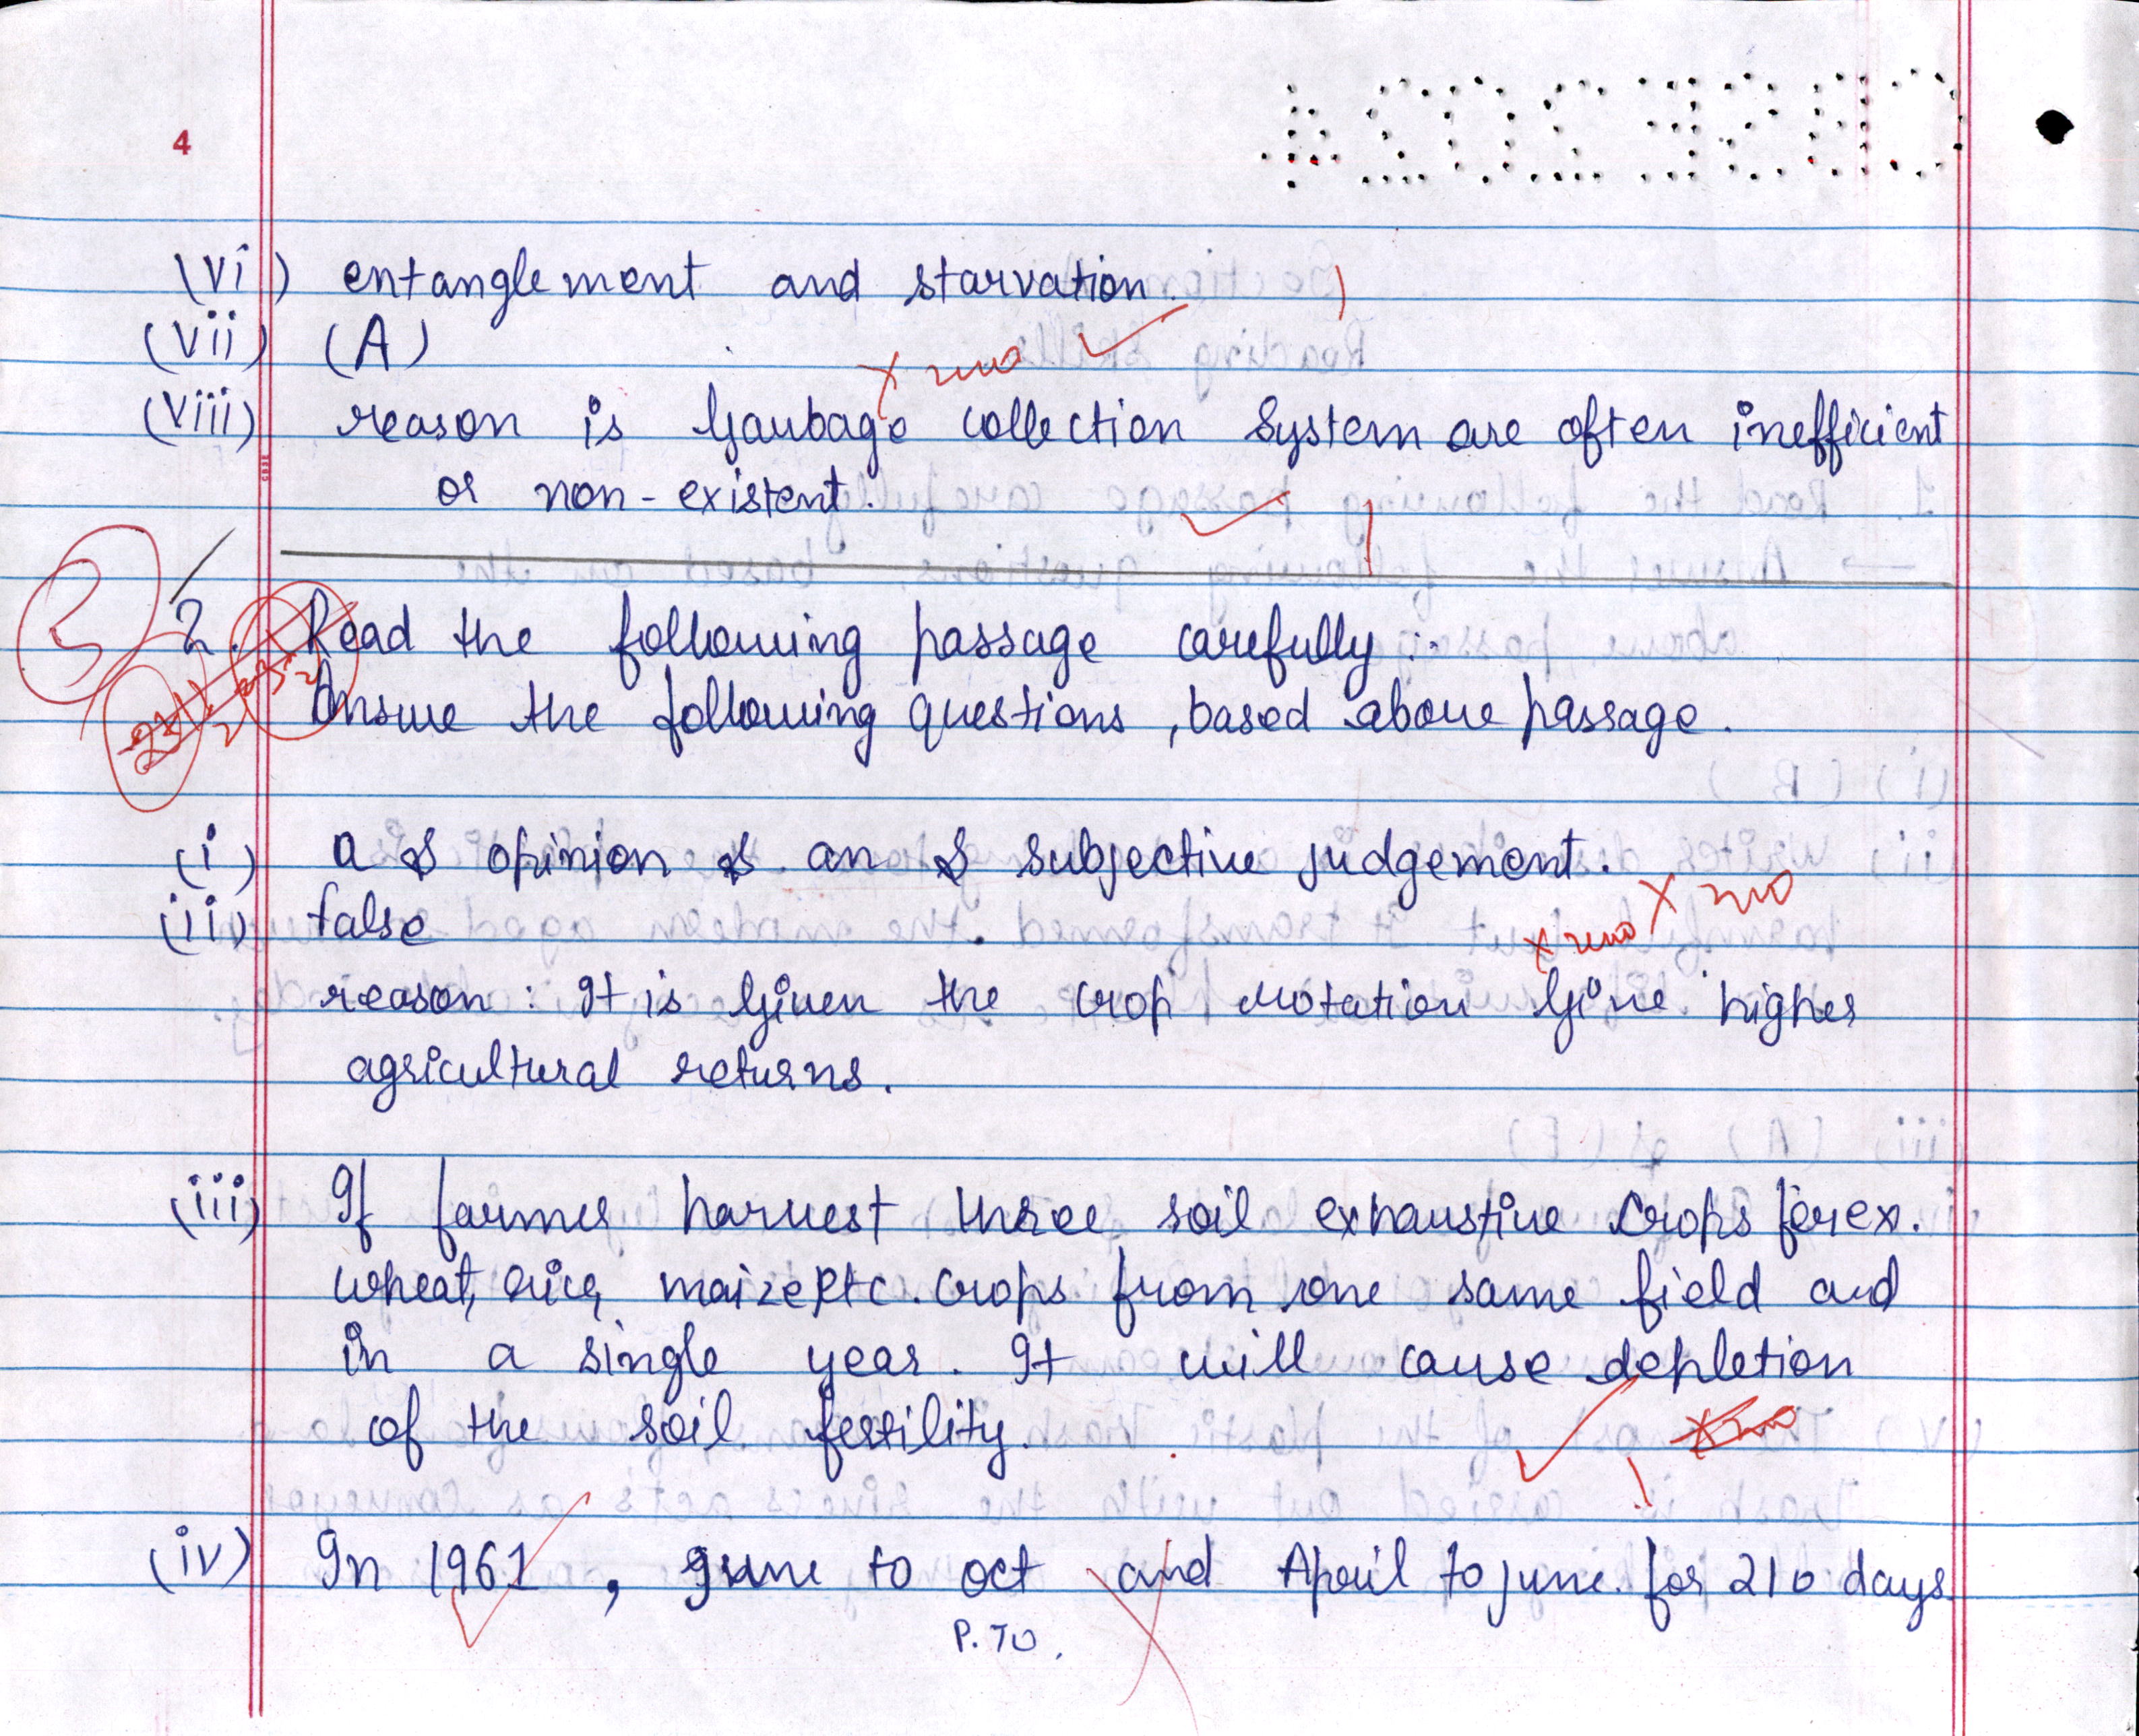 4
CBSE 2024
(vi) entanglement and starvation. 1
(vii) (A)
x zero
(viii) reason is Gaubage collection System are often inefficient
or non-existent. 1
3
2. Read the following passage carefully :-
Answe the following questions, based above passage.
(i) a opinion an subjective judgement.
x zero
(ii) false
x zero
reason : It is Given the crop rotation Give higher
agricultural returns.
(iii) If farmer harvest three soil exhaustive Crops for ex.
wheat, rice, maize etc. crops from one same field and
in a single year. It will cause depletion
of the soil fertility.
1
(iv) In 1961, June to oct and April to june. for 210 days
P.TO.